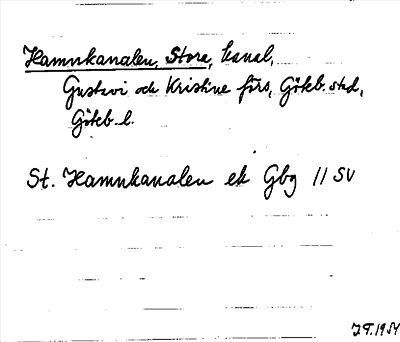 Hamnkanalen, Stora, kanal,
Gustavi och Kristine förs, Göteb. stad,
Göteb. l.
St. Hamnkanalen ek Gbg 11 SV
1954